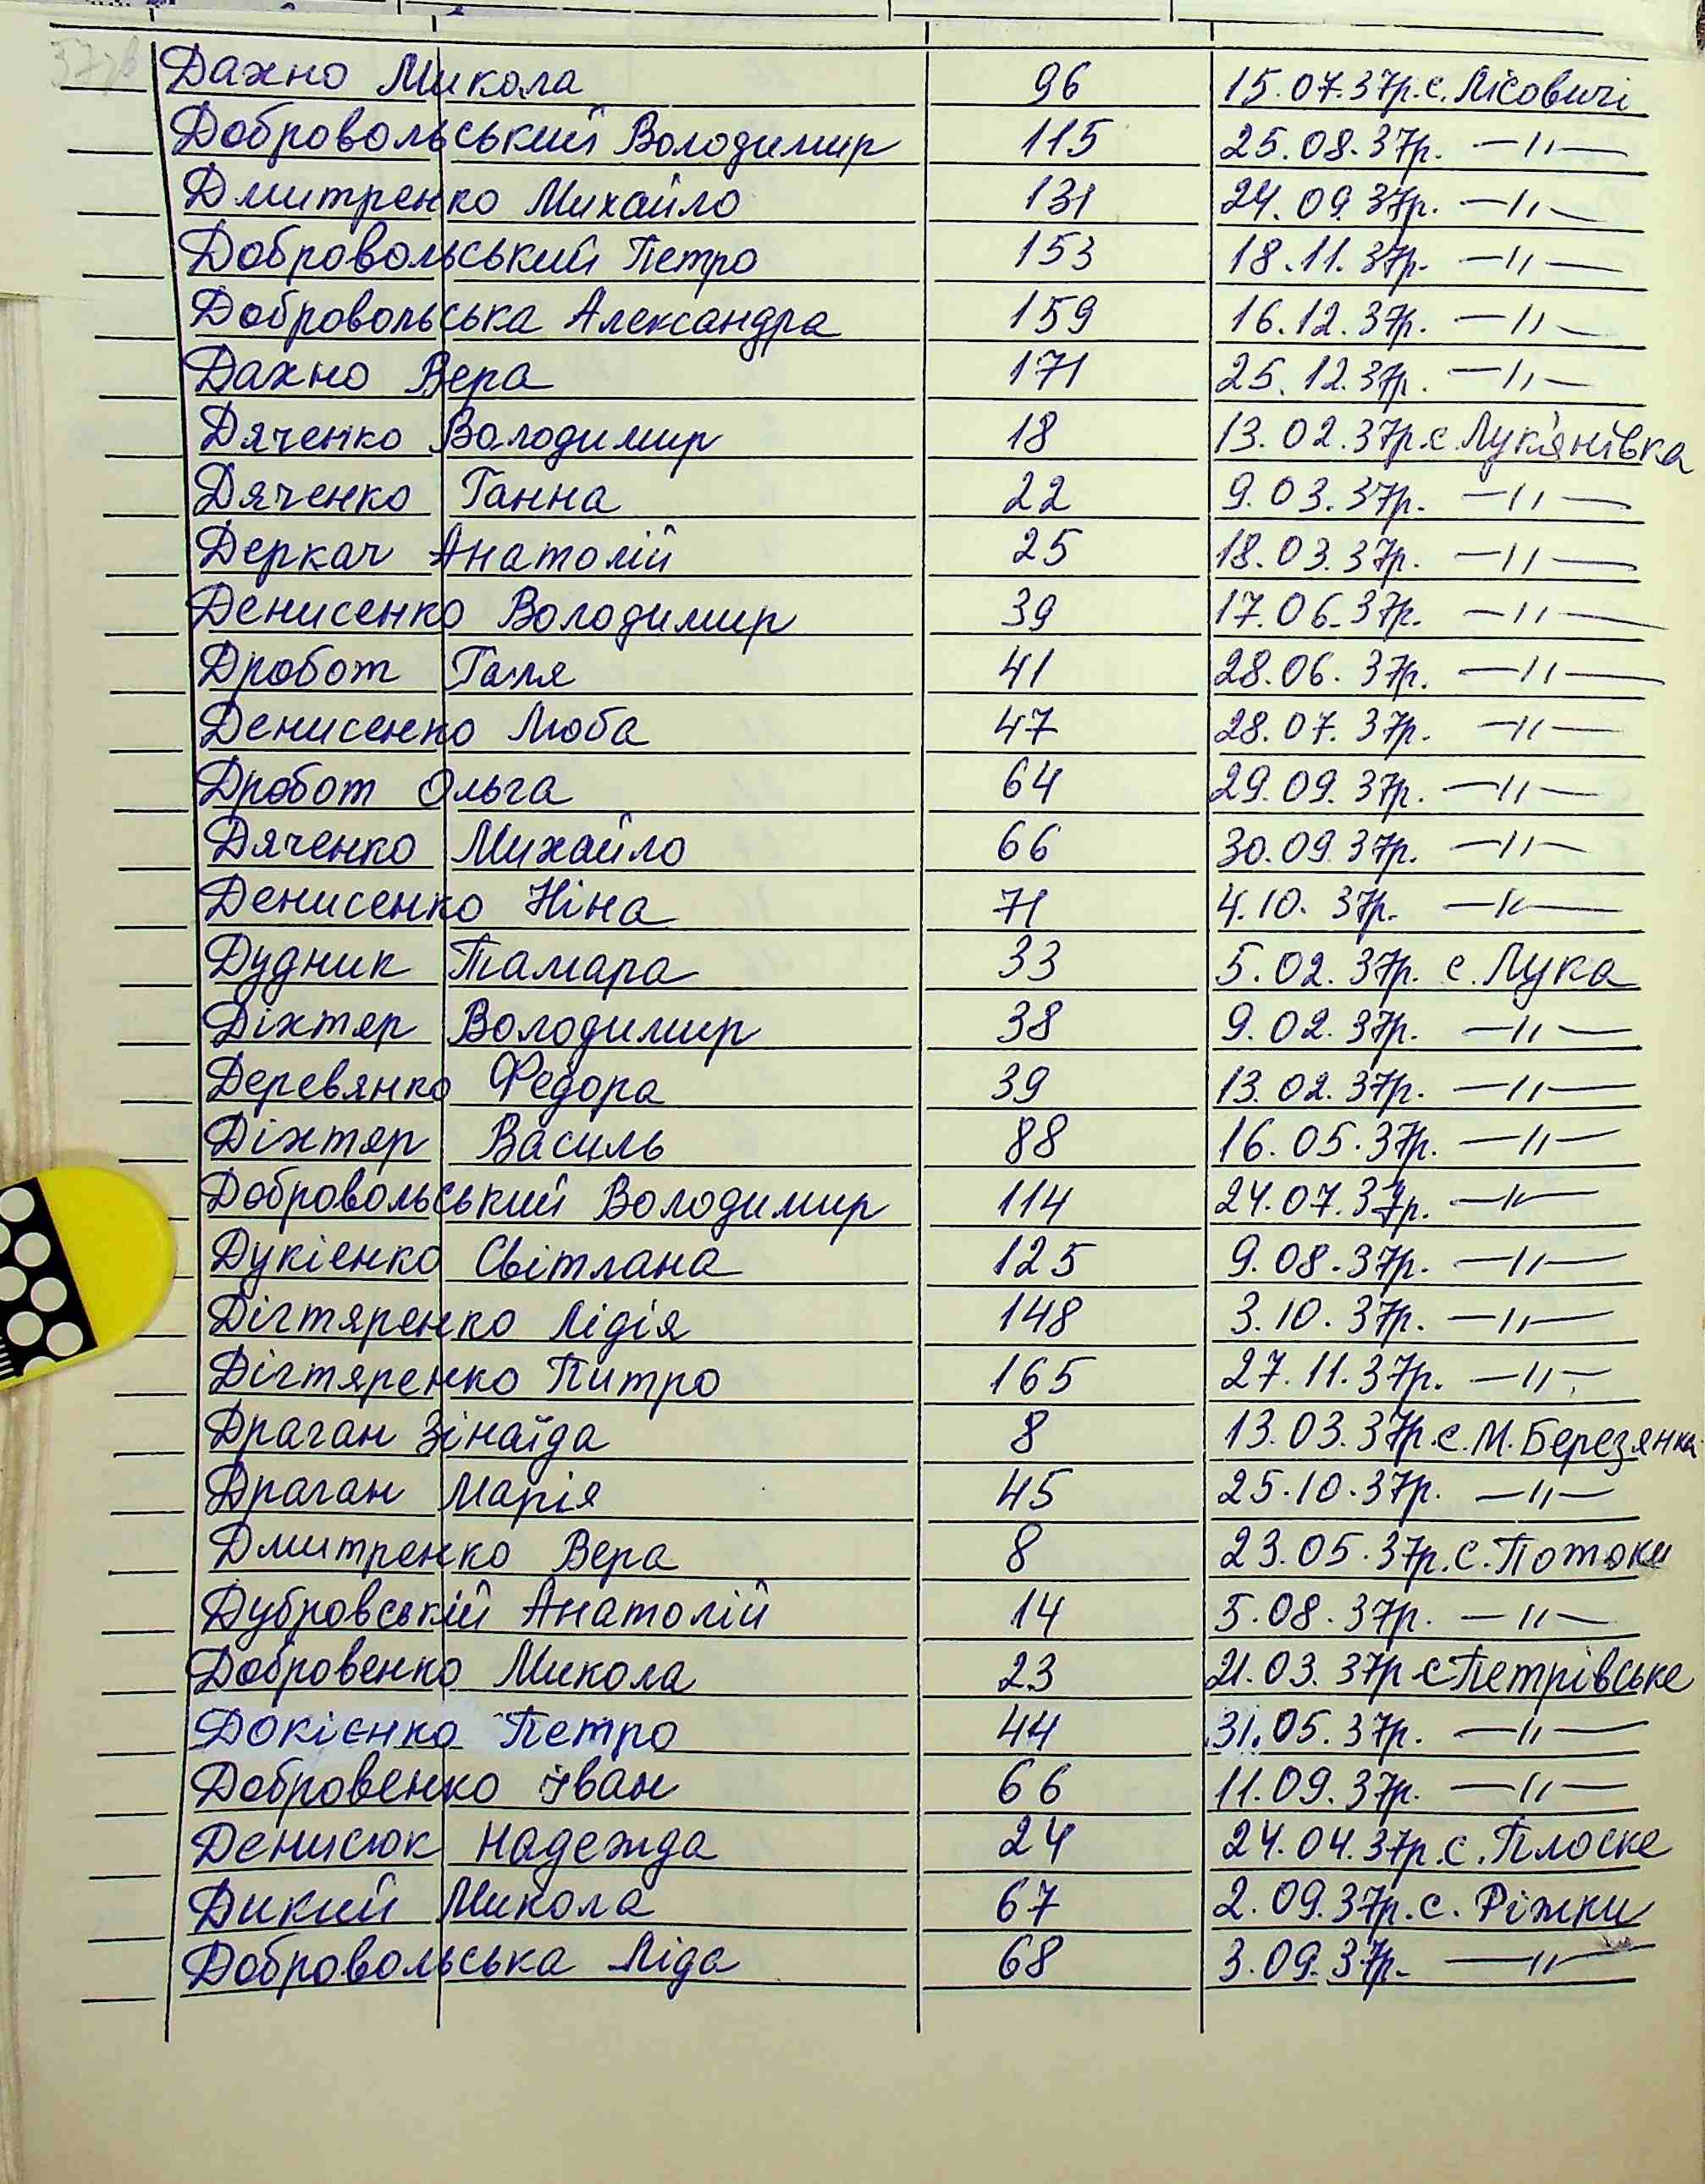 37зв
Дахно Микола 96 15.07.37р. с. Лісовичі
Добровольський Володимир 115 25.08.37р. —〃—
Дмитренко Михайло 131 24.09.37р. —〃—
Добровольський Петро 153 18.11.37р. —〃—
Добровольська Александра 159 16.12.37р. —〃—
Дахно Вера 171 25.12.37р. —〃—
Дяченко Володимир 18 13.02.37р. с. Лук'янівка
Дяченко Ганна 22 9.03.37р. —〃—
Деркач Анатолій 25 18.03.37р. —〃—
Денисенко Володимир 39 17.06.37р. —〃—
Дробот Галя 41 28.06.37р. —〃—
Денисенко Люба 47 28.07.37р. —〃—
Дробот Ольга 64 29.09.37р. —〃—
Дяченко Михайло 66 30.09.37р. —〃—
Денисенко Ніна 71 4.10.37р. —〃—
Дудник Тамара 33 5.02.37р. с. Лука
Діхтяр Володимир 38 9.02.37р. —〃—
Деревянко Федора 39 13.02.37р. —〃—
Діхтяр Василь 88 16.05.37р. —〃—
Добровольський Володимир 114 24.07.37р. —〃—
Дукієнко Світлана 125 9.08.37р. —〃—
Дігтяренко Лідія 148 3.10.37р. —〃—
Дігтяренко Питро 165 27.11.37р. —〃—
Драган Зінаїда 8 13.03.37р. с. М. Березянка
Драган Марія 45 25.10.37р. —〃—
Дмитренко Вера 8 23.05.37р. с. Потоки
Дубровській Анатолій 14 5.08.37р. —〃—
Добровенко Микола 23 21.03.37р с Петрівське
Докієнко Петро 44 31.05.37р. —〃—
Добровенко Іван 66 11.09.37р. —〃—
Денисюк Надежда 24 24.04.37р. с. Плоске
Дикий Микола 67 2.09.37р. с. Ріжки
Добровольська Ліда 68 3.09.37р. —〃—